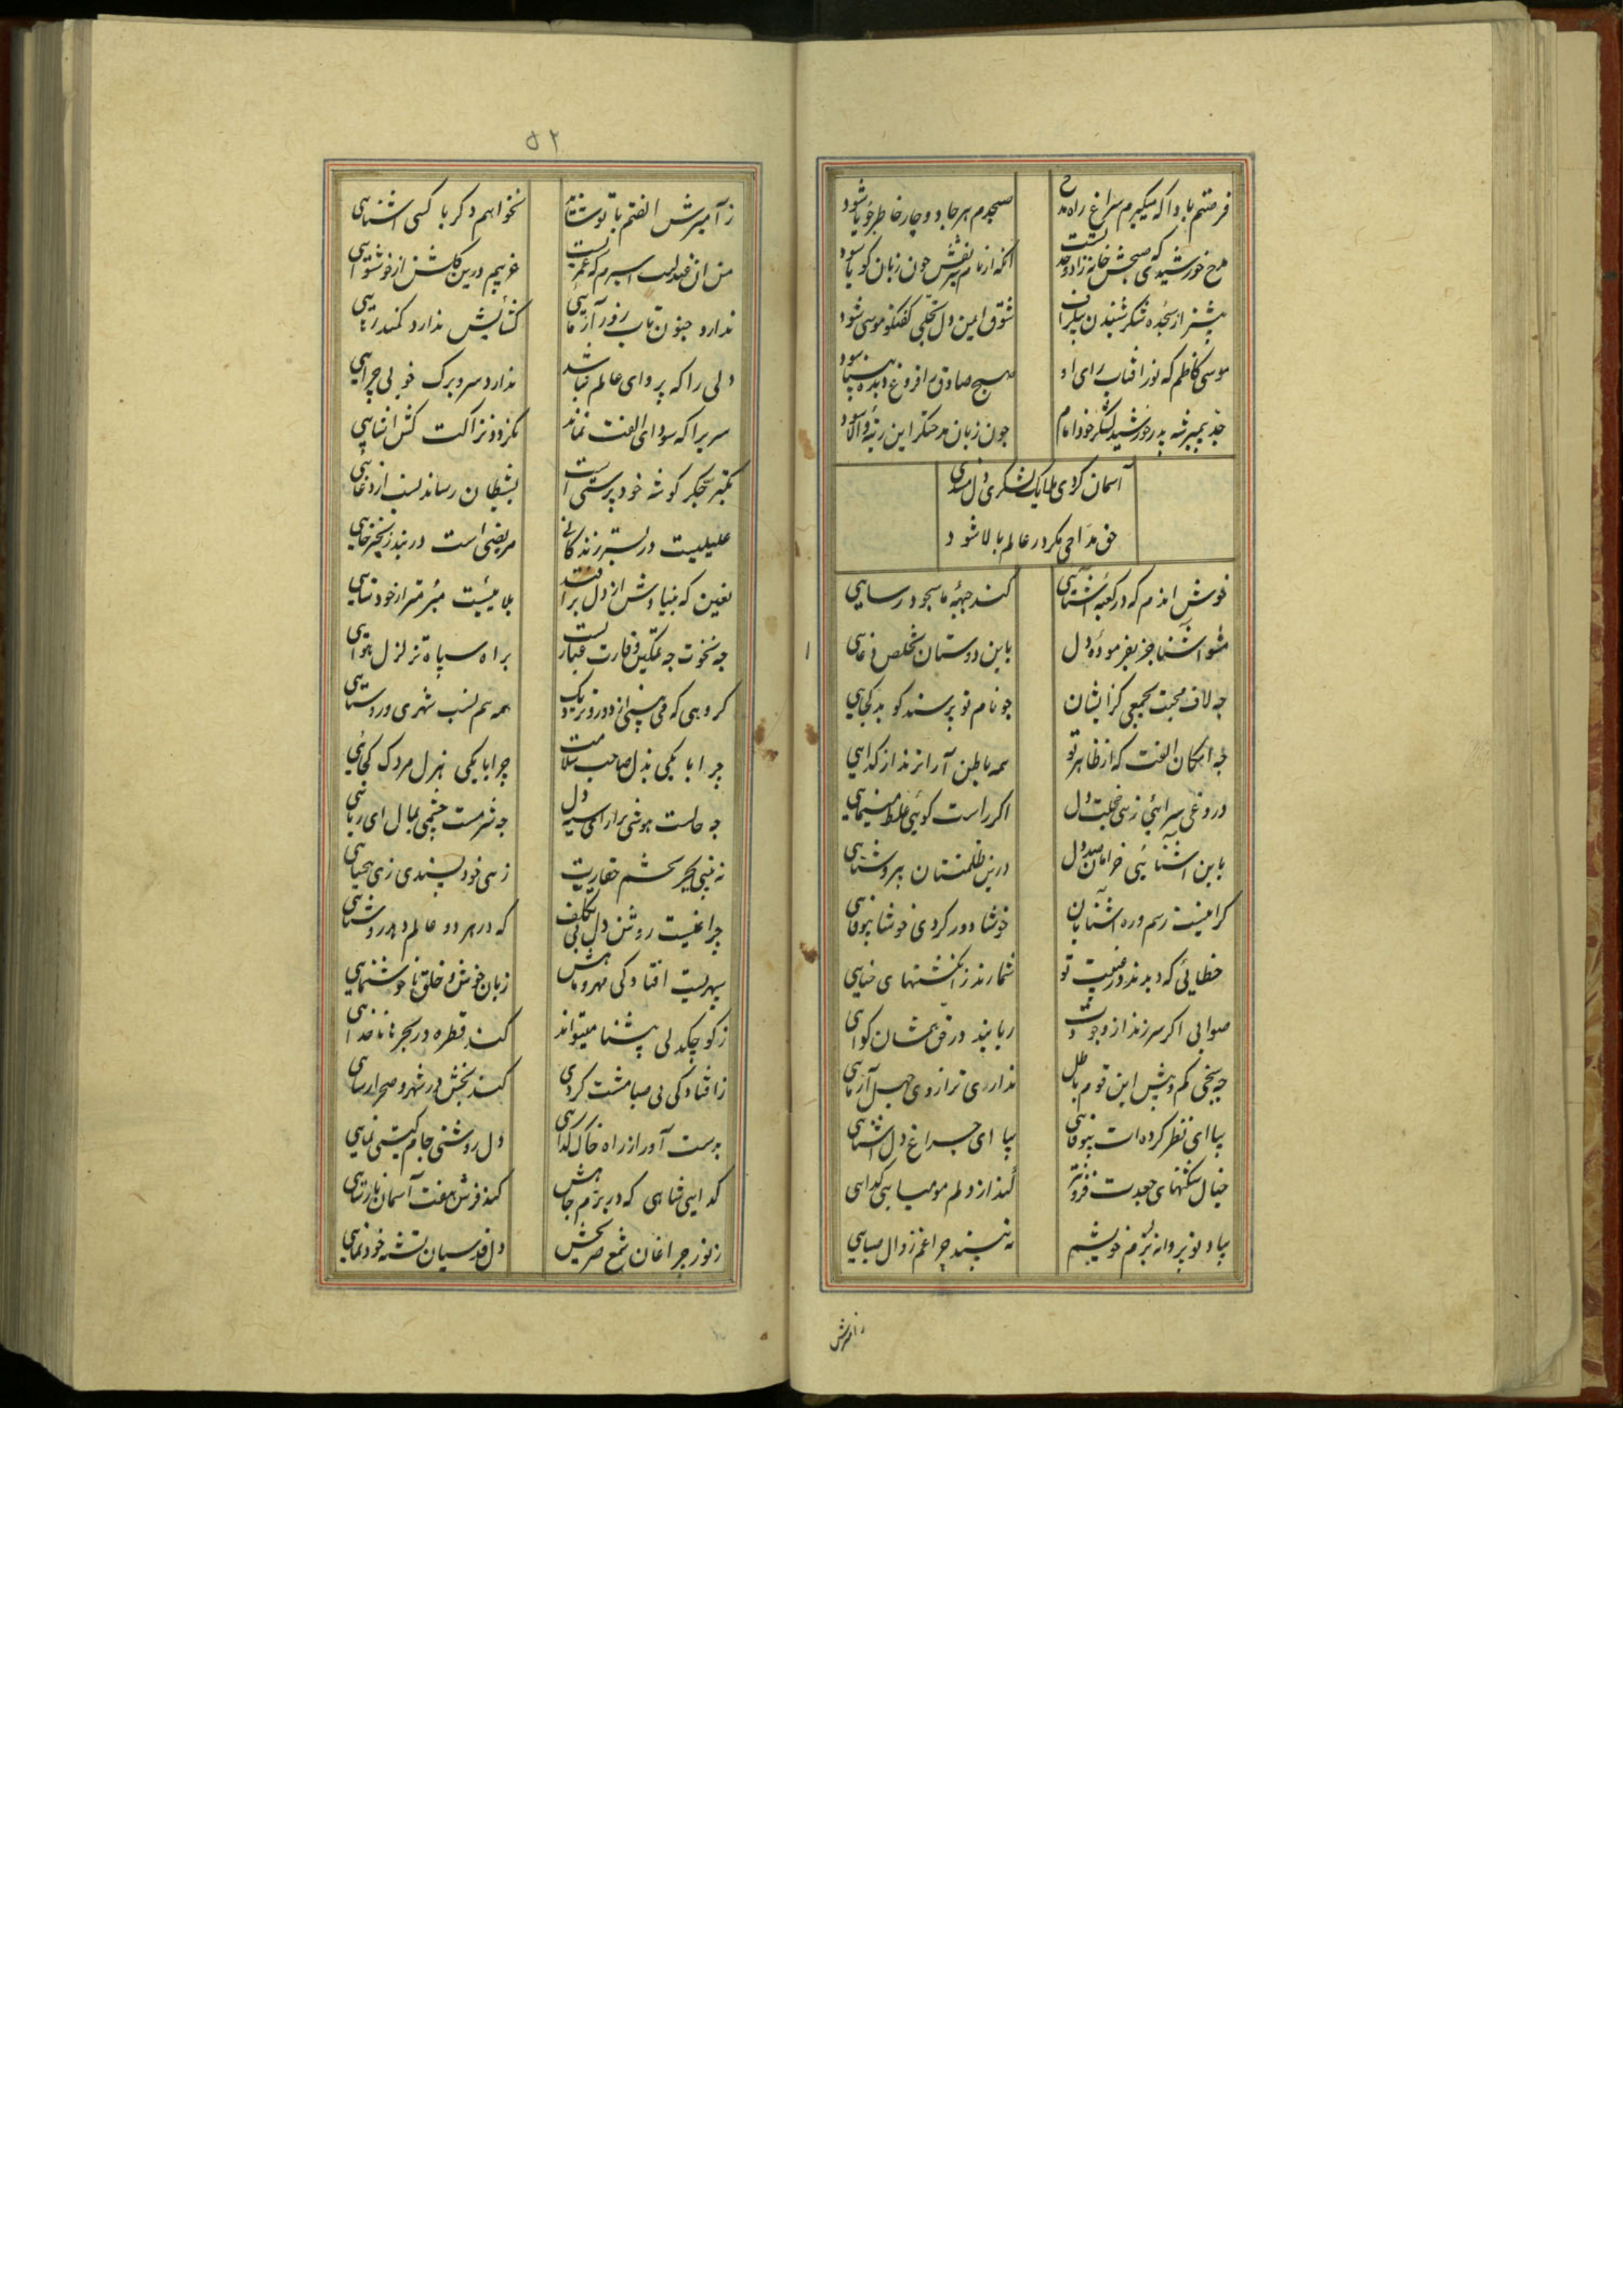 فرصتم بادا که میکیرم سراغ راه مدح
صبحدم هر جا دوچار خاطر جویا شود
مدح خورشیدی که صبحش خانه زاد وحدتست
آنکه از نام نقش چون زبان کویا شود
بیشتر از سجده شکر شنیدن
شوق ایمن دل تجلی کفتکو موسی شود
موسی کاظم که نور آفتاب رای او
صبح صادق را فروغ دیده بینا شود
جد پیمبر شه پدر خورشید لشکر خود امام
چون زبان مدحتکر این رتبه والا شود
آسمان کردی ملایک لشکری دل مسندی
حق مداحی مکر در عالم بالا شود
خوش اندم که در کعبه آشنایی
کند جبهه ما سجود رسایی
مشو آشنا جز بفرموده دل
باین دوستان مخلص دغایی
چه لاف محبت بجمعی کز ایشان
چو نام تو پرسند کوید کجایی
چه امکان الفت که از ظاهر تو
همه باطن آرا تر نداز کدایی
دروغی سرایی زهی خجلت دل
اکر راست کویی غلط مینمایی
باین آشنایی خرامان دل
درین ظلمتستان پیروشنایی
کر اینست رسم و ره آشنایان
خوشا دور کردی خوشا بیوفایی
خطائی که دیدند در غیبت تو
شمارند ز انکشتهای حنایی
صوابی اکر سر زند از وجودت
ربایند در حق کمشان کواهی
چه سنجی کم و بیش این قوم باطل
نداری ترازوی جهل آزمایی
بیا ای نظر کرده ات بیوفایی
بیا ای چراغ دل آشنایی
خیال شکنهای جعدت فزونتر
کند از دلم مومیایی کدایی
بیاد تو پروانه بزم خویشم
نه بیند چراغم زوال صبایی
زآمیزش
۵۲
زآمیزش الفتم با تو شاید
نخواهم دکر با کسی آشنایی
من آن عندلیب اسیرم که عمریست
غریبم درین کلشن از خوشنوایی
ندارد جنون تاب زور آزمایی
کشایش ندارد کمند رسایی
دلی را که پروای عالم نباشد
ندارد سر و برک خوبی چرایی
سریرا که سودای الفت نماند
نکردد نزاکت کش آشنایی
تکبر جکر کوشه خود پرستی است
بشیطان رساند نسب از دغایی
علیلیست در بستر زندکانی
مریضی است در بند زنجیر خایی
تعین که بنیادش از دل برافتد
بلائیست مبرمتر از خودنمایی
چه نخوت چه تمکین وقارت غبار یست
براه سپاه تزلزل هوایی
کروهی که می بینی از دور و نزدیک
همه هم نسب شهری و روستایی
چرا با یکی بذل صاحب سلامت
چرا با یکی هزل مردک کجایی
چه حالست هوشی بر ار ای سیه دل
چه شرمست چشمی بمال ای ریایی
نه بینی بچر بچشم حقارت
زهی خود پسندی زهی بیحیایی
چراغیست روشن دل بی تکلف
که در هر دو عالم دهد روشنایی
سپهریست افتادکی مهر و ماهش
زبان خوش و خلق ناخوشنمایی
ز کوچکدلی پیشنا میتواند
کند قطره در بحرها ناخدایی
ز افتادکی بی صبا مشت کردی
کند بخش در شهر و صحرا رسایی
بدست آور از راه خاک کدا رهی
دل روشنی جام کیتی نمایی
کدایی شاهی که در بزم جاهش
کند فرش هفت آسمان نارسایی
ز نور چراغان شمع ضریحش
دل قدسیان تشنه خودنمایی